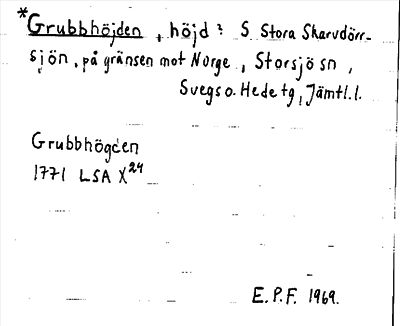 *Grubbhöjden, höjd: S Stora Skarvdörr-
sjön, på gränsen mot Norge, Storsjö sn,
Svegs o. Hede tg, Jämtl. l.
Grubbhögden
1771 LSA X 24
E.P.F. 1969.